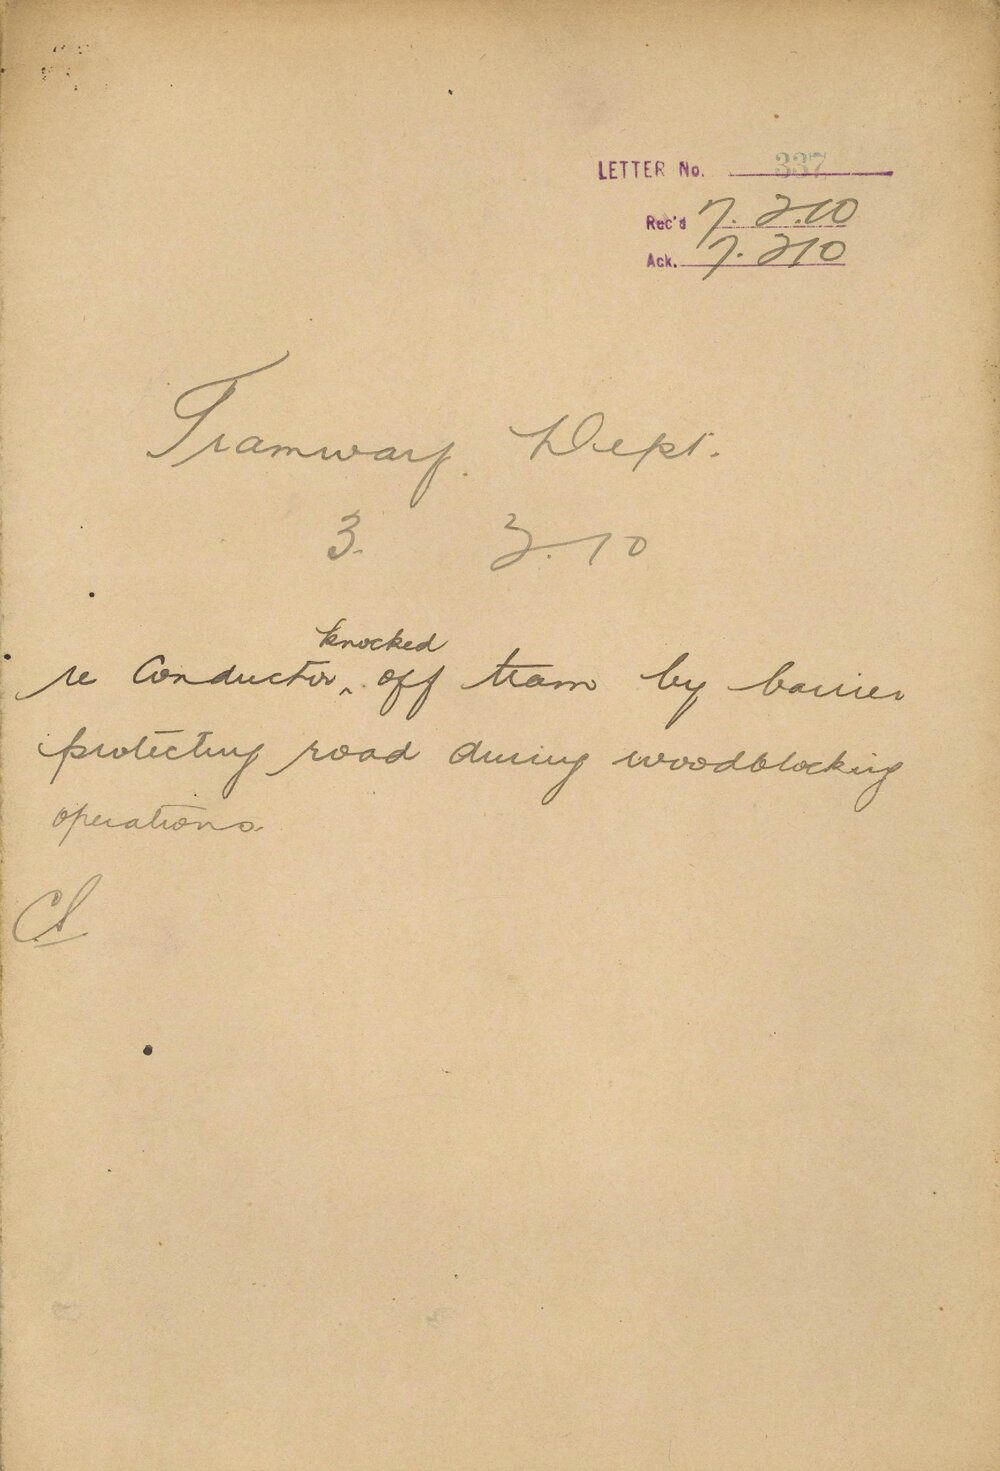 LETTER No. 337
Rec'd 7. 2.10
Ack. 7. 210
Tramway. Dept.
3. 2.10
knocked
re Conductor ‸ off tram by barrier
protecting road during woodblocking
operations.